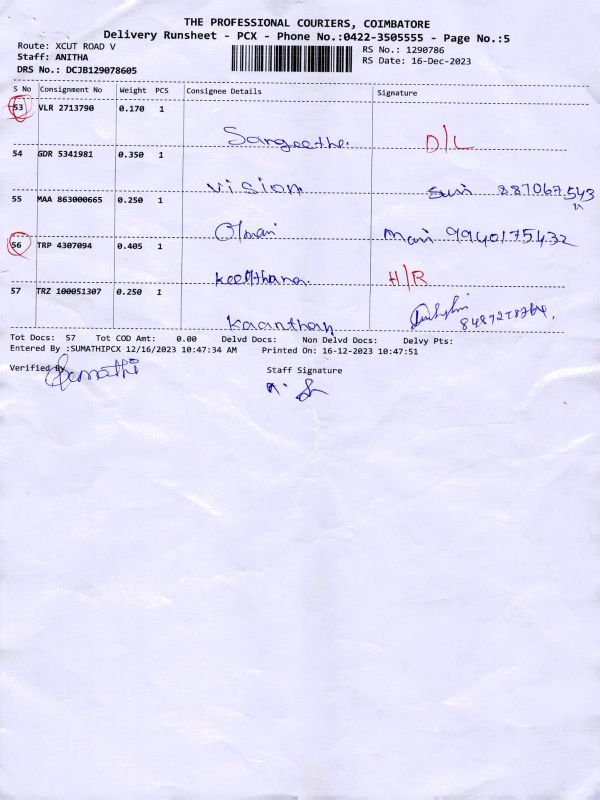 THE PROFESSIONAL COURIERS, COIMBATORE
Delivery Runsheet - PCX - Phone No.:0422-3505555 - Page No.:5
Route: XCUT ROAD V
RS No.: 1290786
Staff: ANITHA
RS Date: 16-Dec-2023
DRS No.: DCJB129078605
S No Consignment No Weight PCS Consignee Details Signature
53 VLR 2713790 0.170 1
Sangeetha. D/L
54 GDR 5341981 0.350 1
Vision Suri 887067543
55 MAA 863000665 0.250 1
Mani 9940175432
56 TRP 4307094 0.405 1
Keerthana. H/R
57 TRZ 100051307 0.250 1
Kaanthan
Tot Docs: 57 Tot COD Amt: 0.00 Delvd Docs: Non Delvd Docs: Delvy Pts:
Entered By :SUMATHIPCX 12/16/2023 10:47:34 AM Printed On: 16-12-2023 10:47:51
Verified By Staff Signature
Sumathi